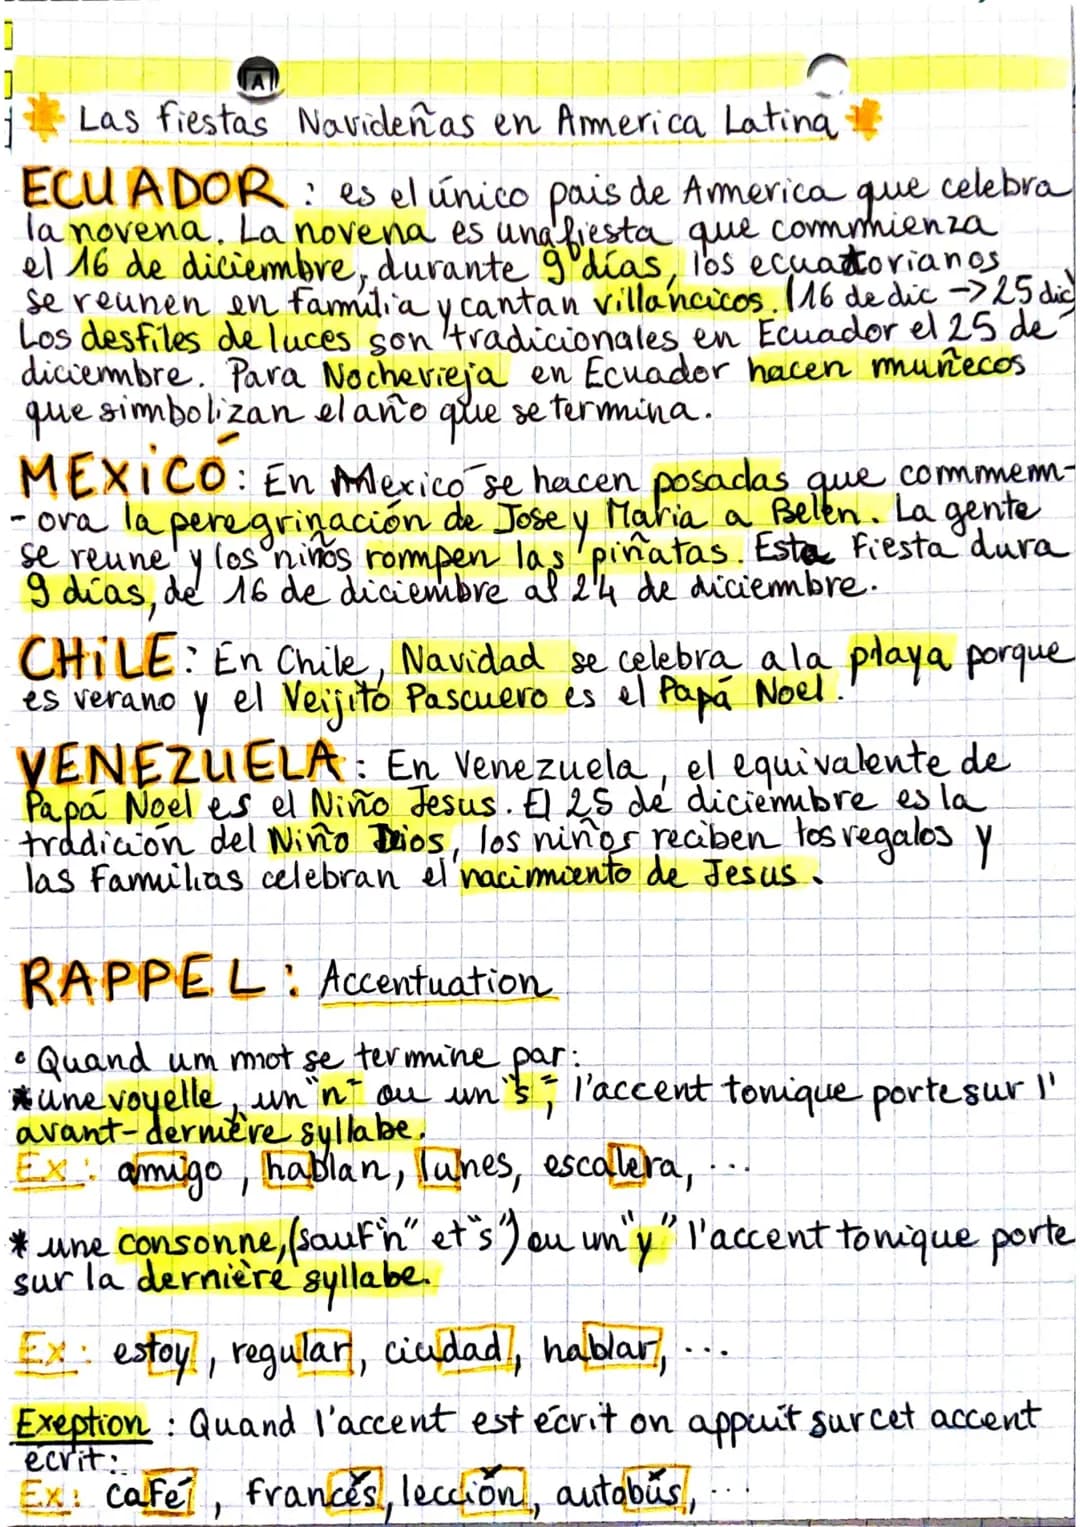 A
Las fiestas Navideñas en America Latina
ECUADOR : es el único pais de America que celebra
la novena. La novena es una fiesta que commienza
el 16 de diciembre, durante 9 días, los ecuatorianos
se reunen en familia y cantan villancicos. (16 de dic -> 25 dic)
Los desfiles de luces son tradicionales en Ecuador el 25 de
diciembre. Para Nochevieja en Ecuador hacen muñecos
que simbolizan el año que se termina.
MEXICÓ : En Mexicó se hacen posadas que commem-
-ora la peregrinación de Jose y Maria a Belén. La gente
se reune y los niños rompen las piñatas. Esta fiesta dura
9 días, de 16 de diciembre al 24 de diciembre.
CHiLE : En Chile, Navidad se celebra a la playa porque
es verano y el Veijito Pascuero es el Papá Noel.
VENEZUELA : En Venezuela, el equivalente de
Papá Noel es el Niño Jesus. El 25 de diciembre es la
tradición del Niño Dios, los niños reciben los regalos y
las familias celebran el nacimiento de Jesus.
RAPPEL : Accentuation
• Quand um mot se termine par:
* une voyelle, un "n" ou un "s", l'accent tonique porte sur l'
avant-dernière syllabe.
Ex : amigo, hablan, lunes, escalera, ...
* une consonne, (sauf "n" et "s") ou un "y" l'accent tonique porte
sur la dernière syllabe.
Ex : estoy, regular, ciudad, hablar, ...
Exeption : Quand l'accent est écrit on appuit sur cet accent
écrit:
Ex : café, francés, lección, autobús, ...